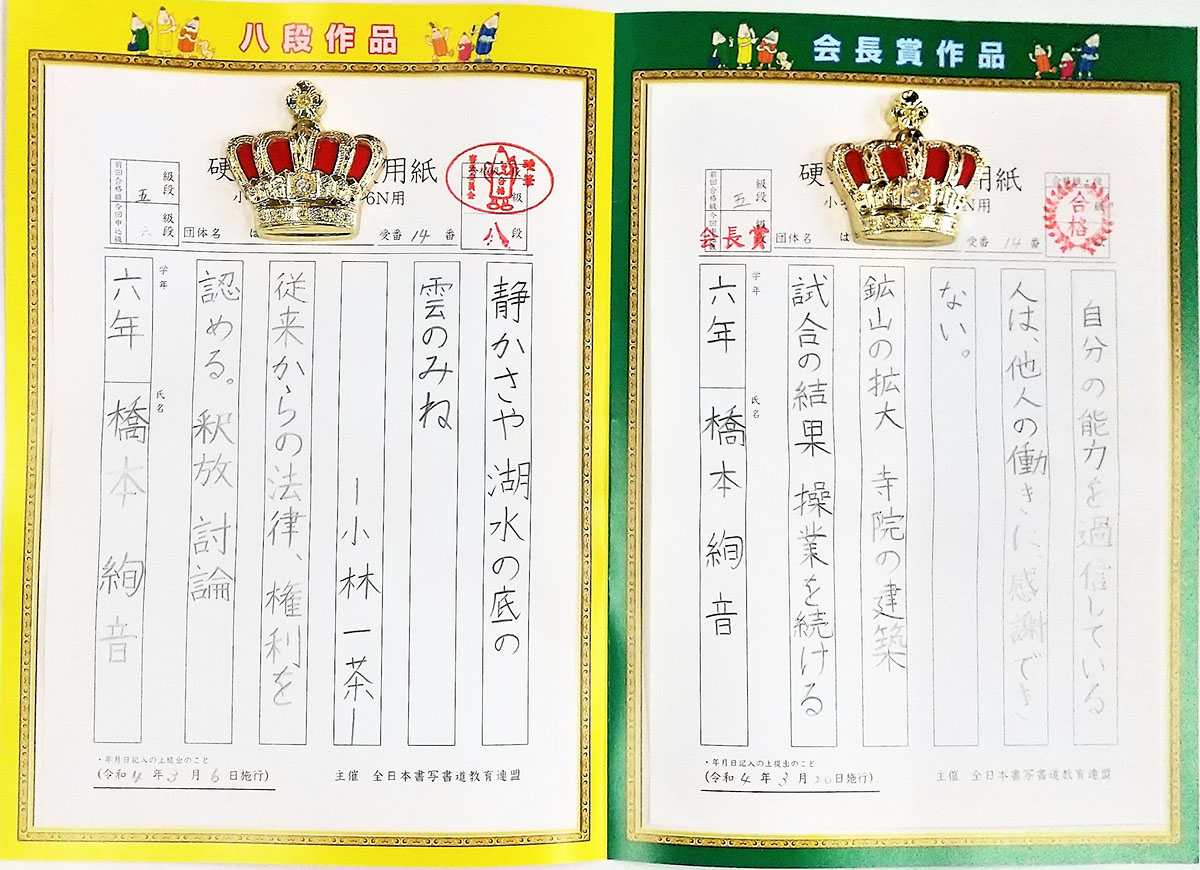 八段作品
硬
用紙
小
6N用
合格
八
級
前回合格級
五
級
段
今回申込級
六
級
段
団体名
は
受番
14
番
静かさや 湖水の底の
雲のみね
ー小林一茶ー
従来からの法律、権利を
認める。釈放 討論
学年
六年
氏名
橋本 絢音
・年月日記入の上提出のこと
(令和4年3月6日施行)
主催 全日本書写書道教育連盟
会長賞作品
硬
用紙
小
N用
合格
前回合格級
五
級
段
会長賞
団体名
は
受番
14
番
自分の能力を過信している
人は、他人の働きに、感謝でき
ない。
鉱山の拡大 寺院の建築
試合の結果 操業を続ける
学年
六年
氏名
橋本 絢音
・年月日記入の上提出のこと
(令和4年3月20日施行)
主催 全日本書写書道教育連盟